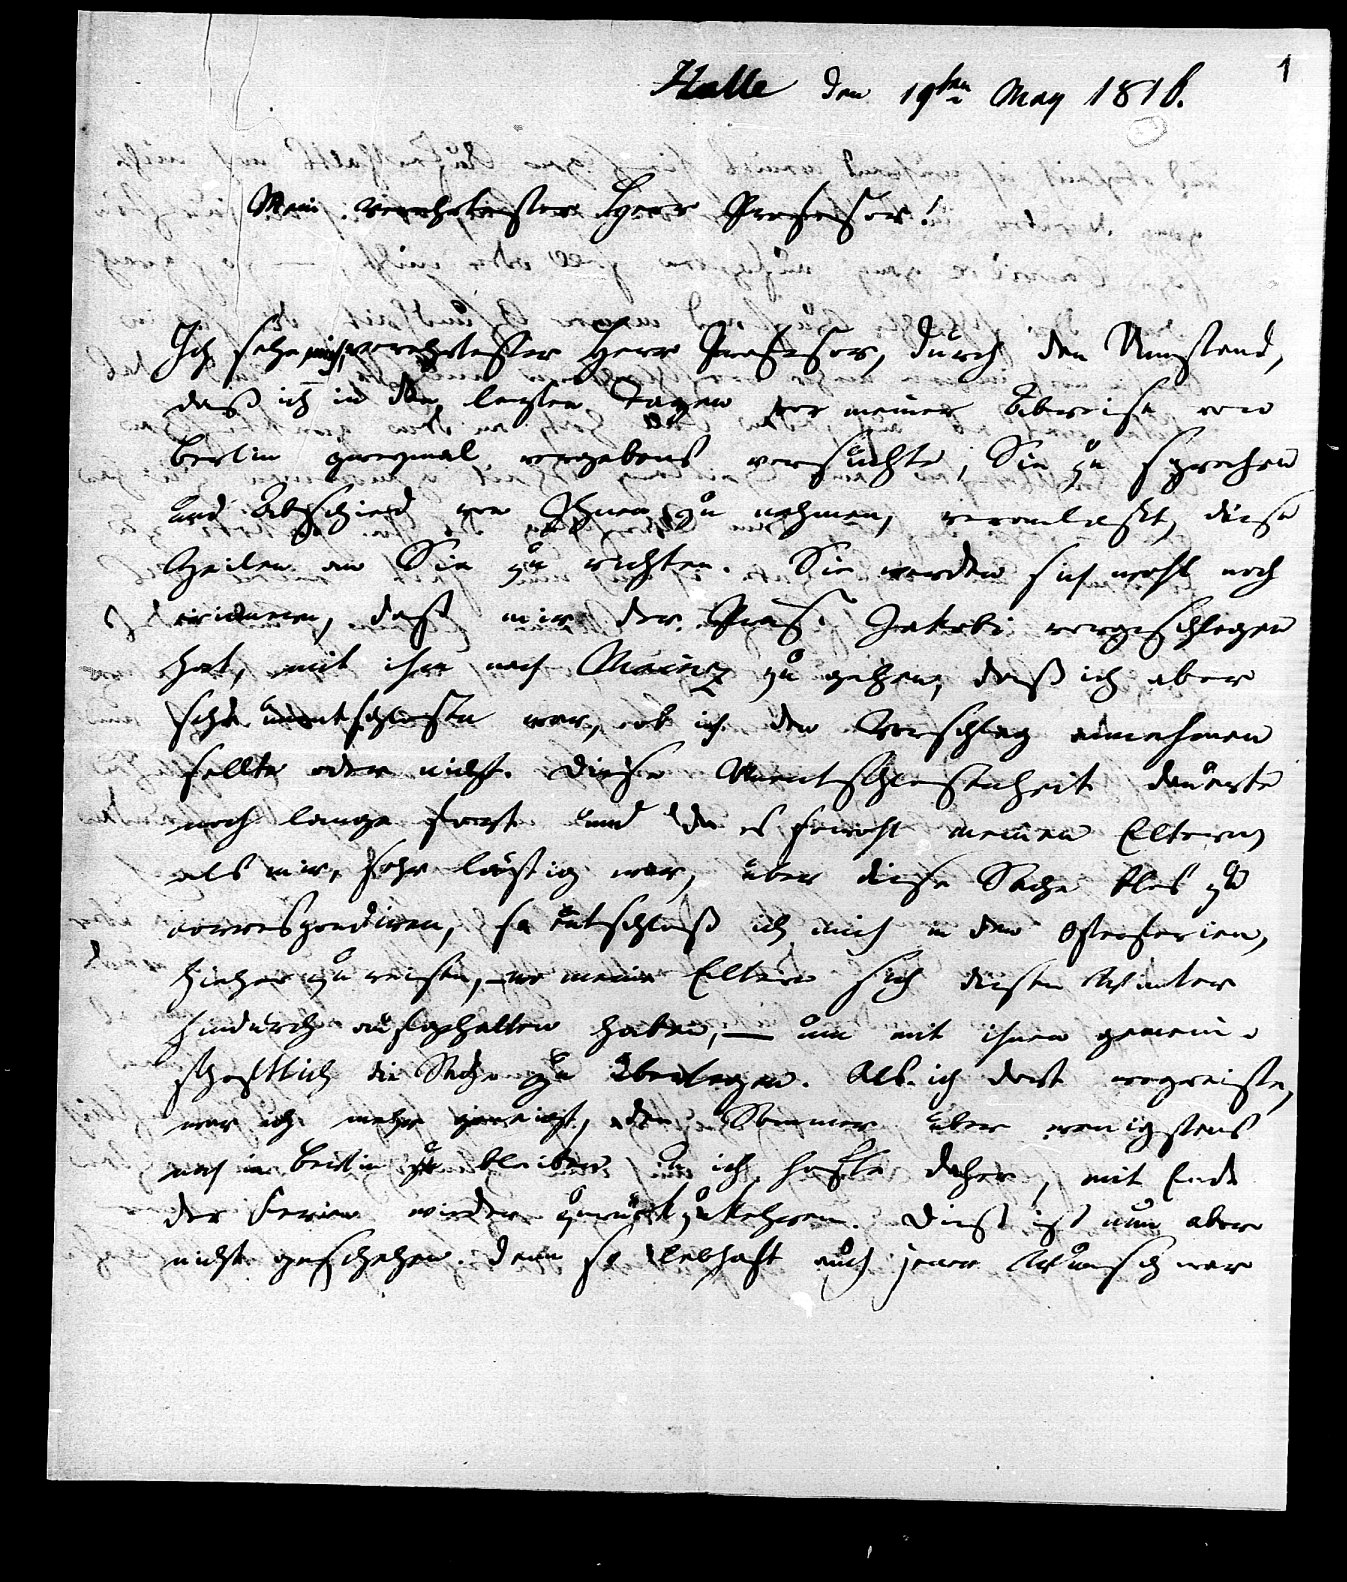 1
Halle den 19ten May 1816.
Mein verehrtester Herr Professor!
Ich sehe mich, verehrtester Herr Professor, durch den Umstand,
daß ich in den lezten Tagen vor meiner Abreise von
Berlin zweymal vergebens versuchte, Sie zu sprechen
und Abschied von Ihnen zu nehmen, veranlaßt, diese
Zeilen an Sie zu richten. Sie werden sich wohl noch
erinnern, daß mir der Präs. Jakobi vorgeschlagen
hat, mit ihm nach Mainz zu gehen, daß ich aber
sehr unentschlossen war, ob ich den Vorschlag annehmen
sollte oder nicht. Diese Unentschlossenheit dauerte
noch lange fort und da es sowohl meinen Eltern,
als mir, sehr lästig war, über diese Sache blos zu
correspondiren, so entschloß ich mich in den Osterferien,
hieher zu reisen, wo meine Eltern sich diesen Winter
hindurch aufgehalten haben, — um mit ihnen gemein-
schaftlich die Sache zu überlegen. Als ich dort wegreiste,
war ich mehr geneigt, den Sommer über wenigstens
noch in Berlin zu bleiben, u ich hoffte daher, mit Ende
der Ferien wieder zurückzukehren. Dieß ist nun aber
nicht geschehen. denn so lebhaft auch jener Wunsch war